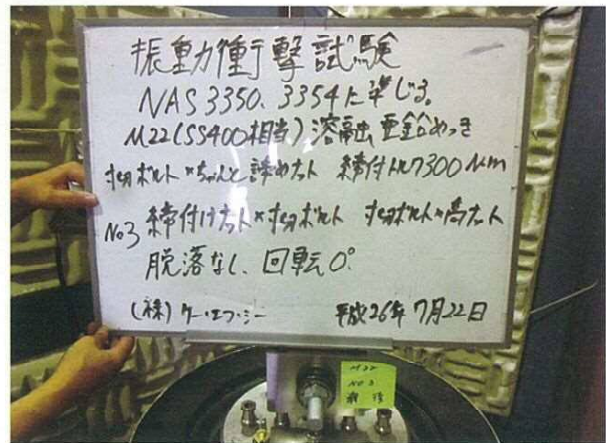 振動衝撃試験
NAS3350、3354に準じる。
M22(SS400相当)溶融亜鉛めっき
寸切ボルト×ちゃんと諦めナット 締付トルク300N・m
No3 締付けナット×寸切ボルト 寸切ボルト×高ナット
脱落なし、回転0°
(株)ケー・エフ・シー 平成26年7月22日
M22
NO 3